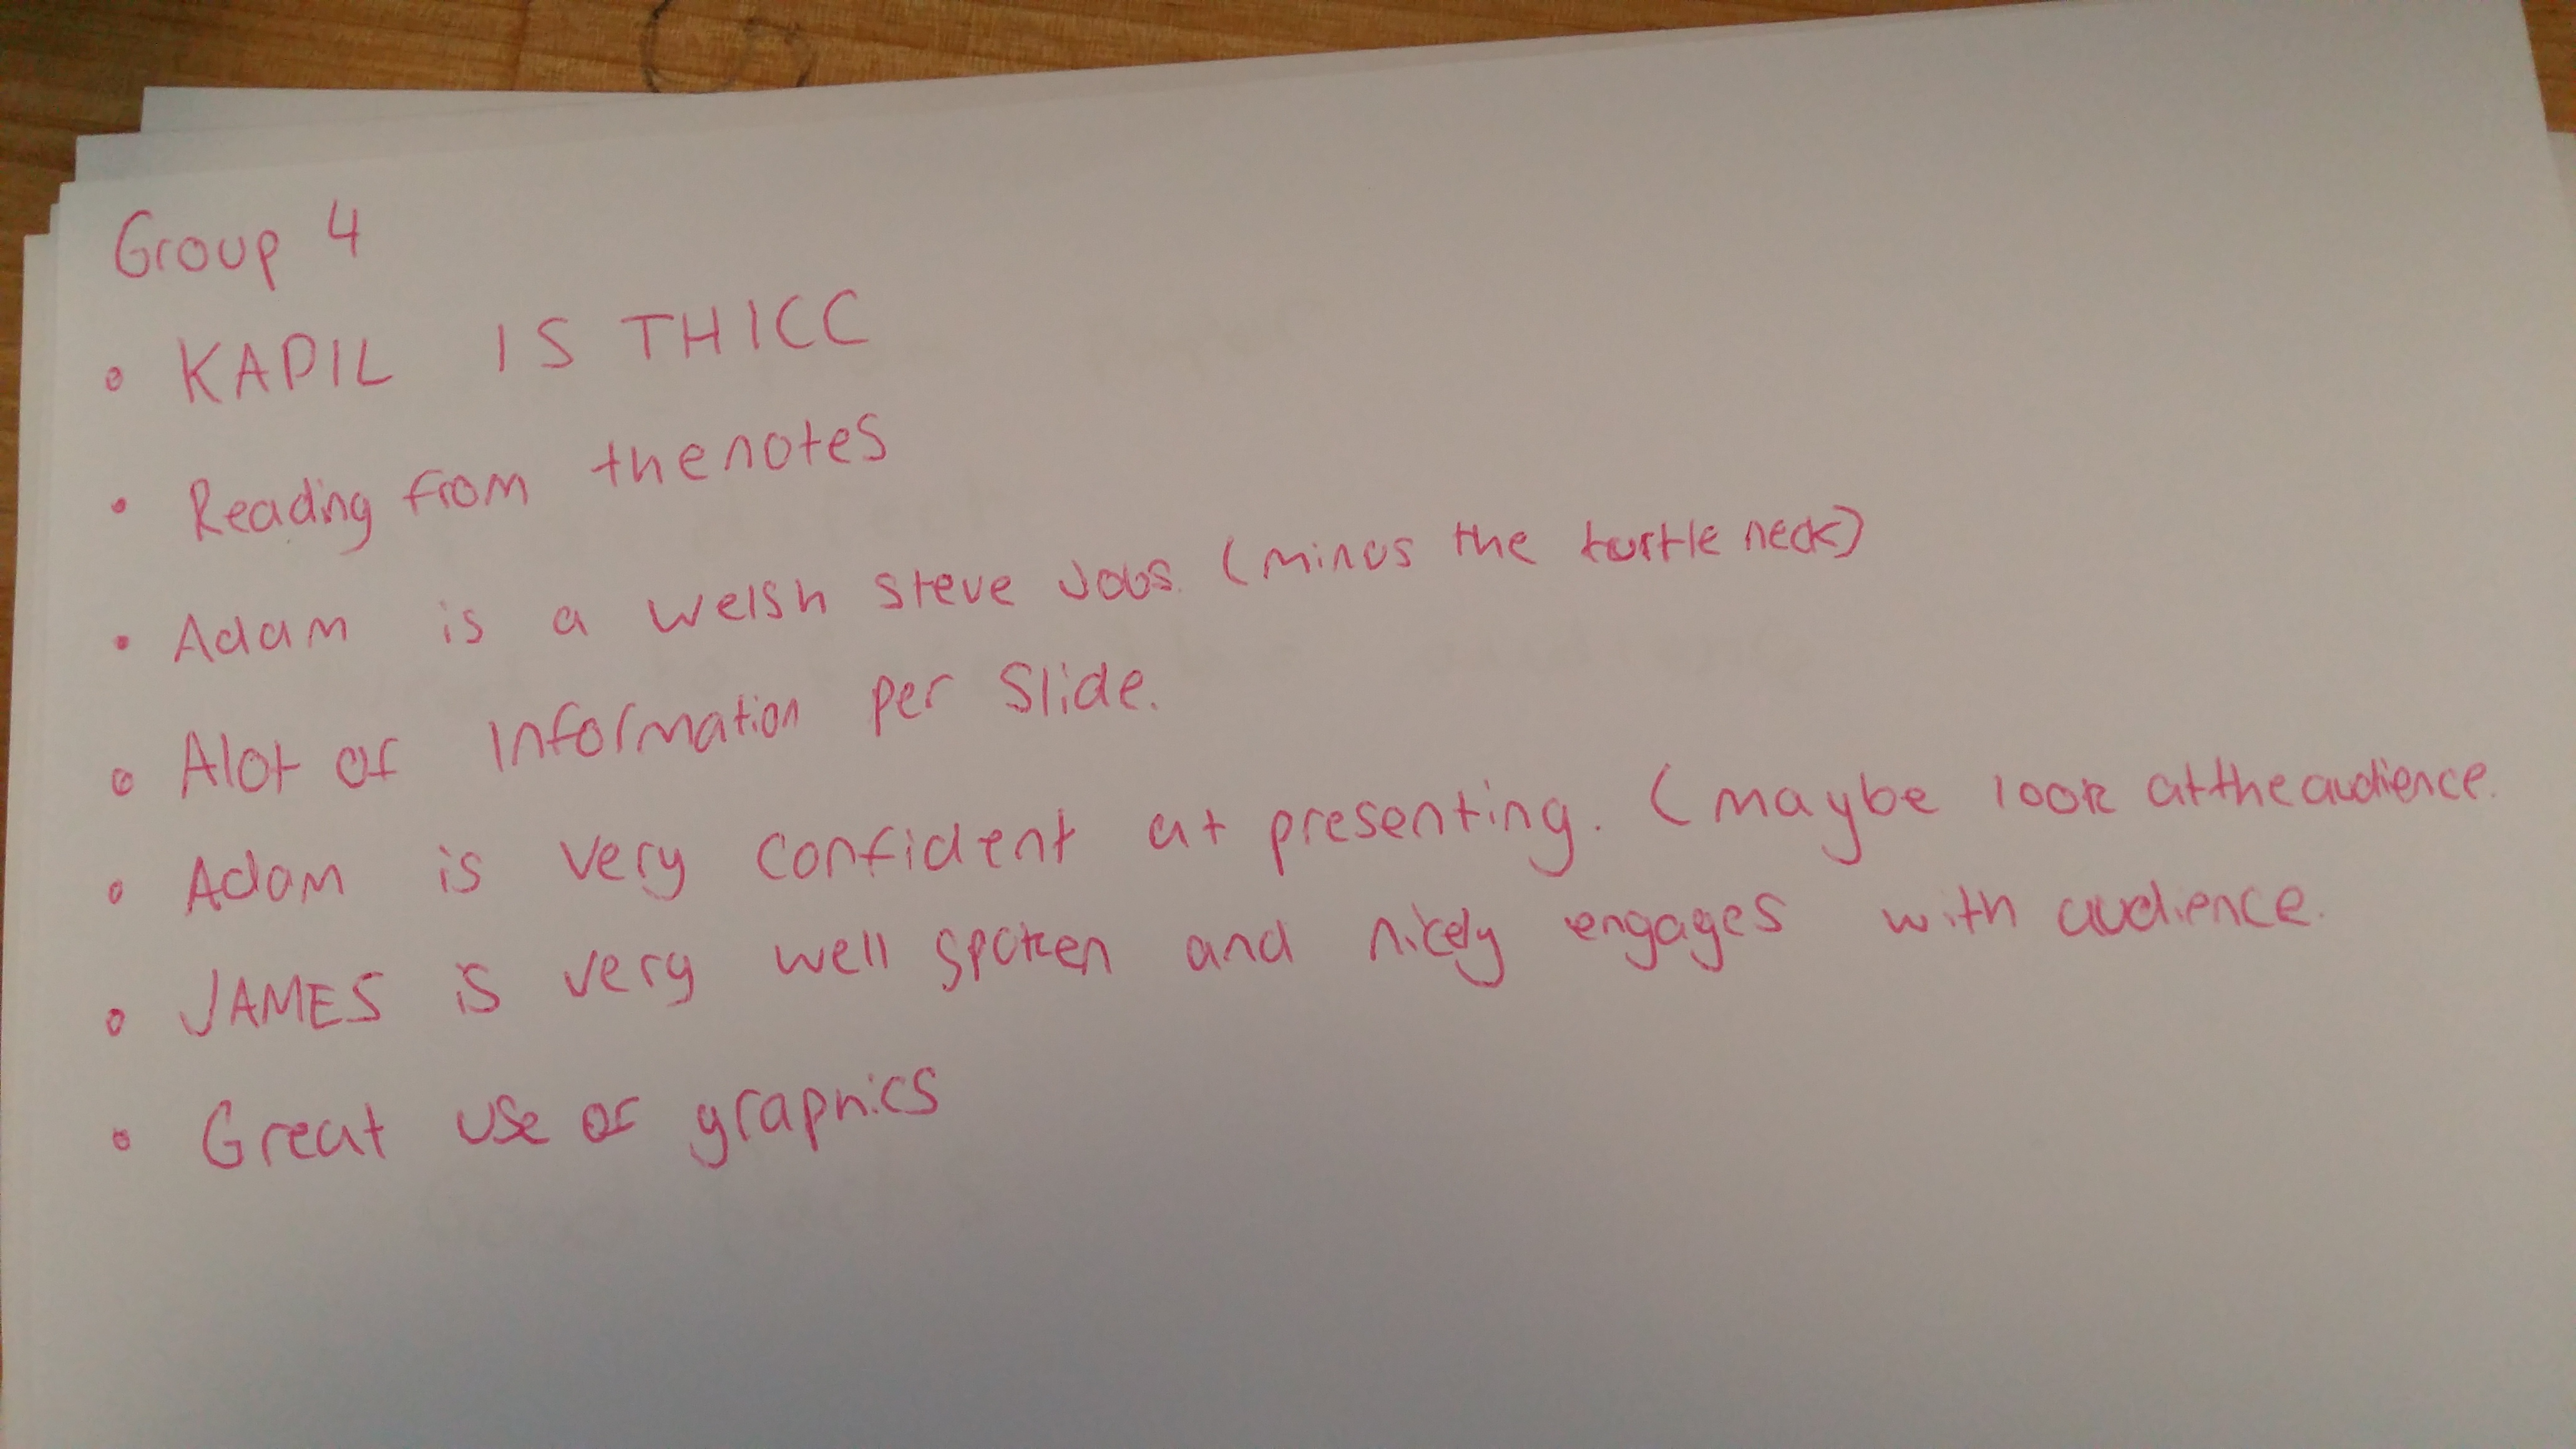 Group 4
• KAPIL IS THICC
• Reading from the notes
• Adam is a welsh steve Jobs. (minus the turtle neck)
• Alot of Information per Slide.
• Adam is very confident at presenting. (maybe look at the audience.
• JAMES is very well spoken and nicely engages with audience.
• Great use of graphics